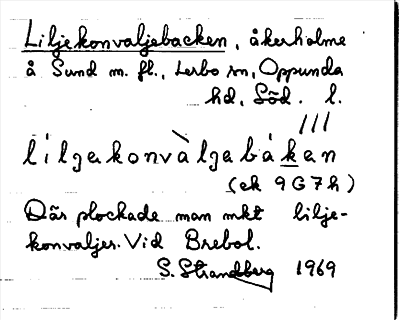 Liljekonvaljebacken, åkerholme
å Sund m. fl., Lerbo sn, Oppunda
hd, Söd. l.
///
lilgakonvàlgebákan
(ek 9G7h)
Där plockade man mkt lilje-
konvaljer. Vid Brebol.
S. Strandberg 1969